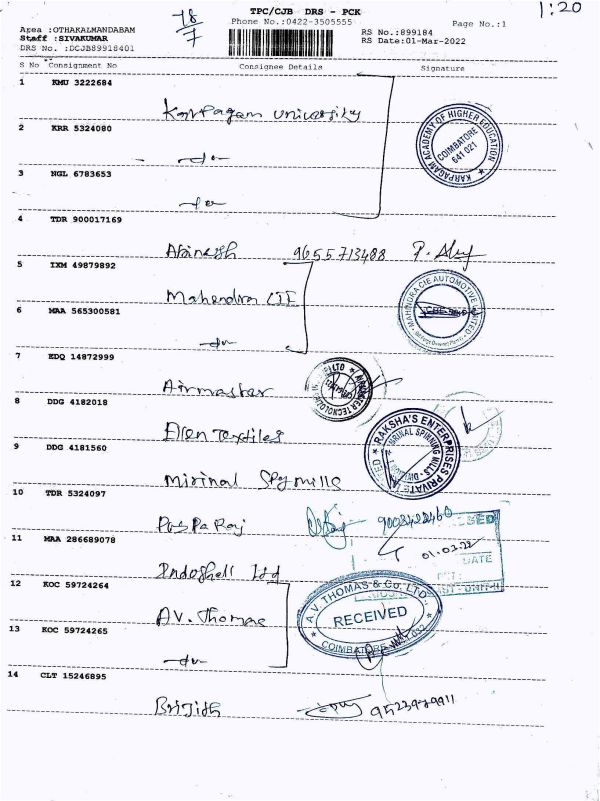 TPC/CJB DRS - PCK
1:20
18/7
Phone No.:0422-3505555
Page No.:1
Area :OTHAKALMANDABAM
Staff :SIVAKUMAR
RS No.:899184
DRS No. :DCJB89918401
RS Date:01-Mar-2022
S No Consignment No Consignee Details Signature
1 KMU 3222684
Karpagam University
KARPAGAM ACADEMY OF HIGHER EDUCATION
COIMBATORE
641 021
2 KRR 5324080
-do-
3 NGL 6783653
-do-
4 TDR 900017169
Abinesh 9655713488
5 IXM 49879892
Mahendra CIE
MAHINDRA CIE AUTOMOTIVE LIMITED
6 MAA 565300581
-do-
7 EDQ 14872999
Airmaster
8 DDG 4182018
Eren Textiles
RAKSHA'S ENTERPRISES PRIVATE
9 DDG 4181560
Mirinal Spg mills
10 TDR 5324097
PusPa Raj
11 MAA 286689078
01.03.22
DATE
Indoshell Ltd
12 KOC 59724264
A.V. Thomas
A.V. THOMAS & Co. LTD.,
RECEIVED
COIMBATORE
13 KOC 59724265
-do-
14 CLT 15246895
Brijith